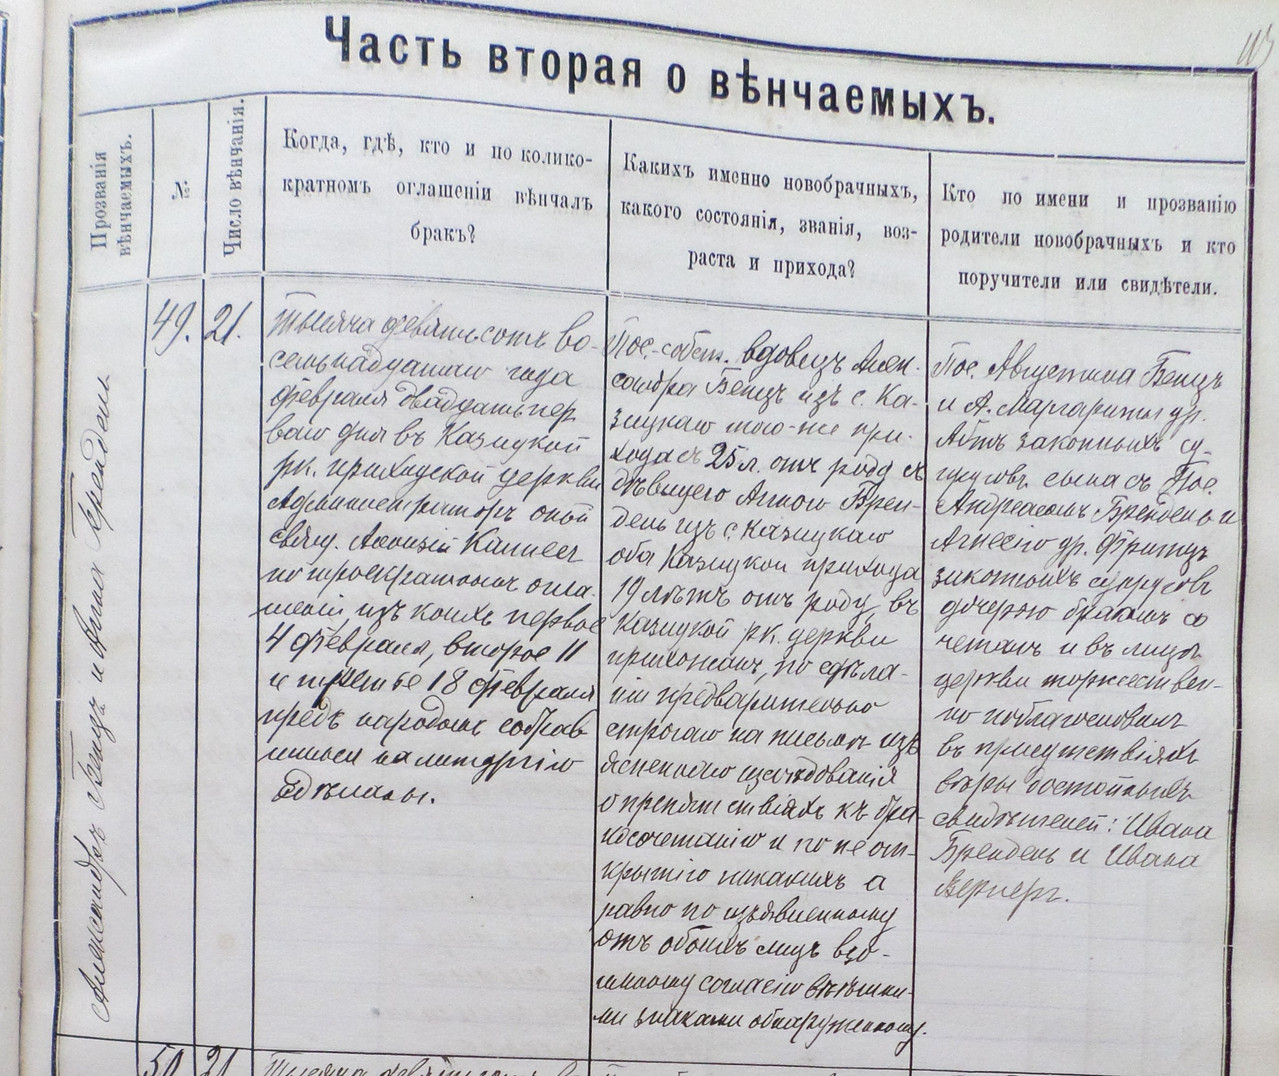 113
Часть вторая о вѣнчаемыхъ.
Прозванія
вѣнчаемыхъ.
№
Число вѣнчанія.
Когда, гдѣ, кто и по колико-
кратномъ оглашеніи вѣнчалъ
бракъ?
Какихъ именно новобрачныхъ,
какого состоянія, званія, воз-
раста и прихода?
Кто по имени и прозванію
родители новобрачныхъ и кто
поручители или свидѣтели.
Александръ Бенцъ и Анна Брендель
49.
21.
Тысяча девятьсотъ во-
семьнадцатаго года
февраля двадцать пер
ваго дня въ Казицкой
рк. приходской церкви
Администраторъ оной
свящ. Алоизій Каппесъ
по троекратномъ огла-
шеніи, изъ коихъ первое
4 февраля, второе 11
и третье 18 февраля
предъ народомъ собрав
шимся на литургію
сдѣланы.
Пос.-собст. вдовецъ Алек-
сандра Бенцъ изъ с. Ка-
зицкаго того-же при-
хода съ 25 л. отъ роду съ
дѣвицею Анною Брен-
дель изъ с. Казицкаго
оба Казицкой прихода
19 лѣтъ отъ роду, въ
Казицкой рк. церкви
прихожанъ, по сдѣла-
ніи предварительно
строгаго на письмѣ изъ
яснен наго изслѣдованія
о препятствіяхъ къ бра-
косочетанію и по не от-
крытію никакихъ а
равно по изъявленному
отъ обоихъ лицъ вза-
имному согласію внѣшни-
ми знаками обнаруженному.
Пос. Августина Бенцъ
и А. Маргариты ур.
законныхъ су-
пруговъ сына съ Пос.
Андреасомъ Брендель и
Агнесію ур. Фритцъ
законныхъ супруговъ
дочерью бракомъ со
четалъ и въ лицѣ
церкви торжествен-
но поблагословилъ
въ присутствіяхъ
вѣры достойныхъ
свидѣтелей: Ивана
Брендель и Ивана
Вернеръ.
50
21
Тысяча девятьсотъ во